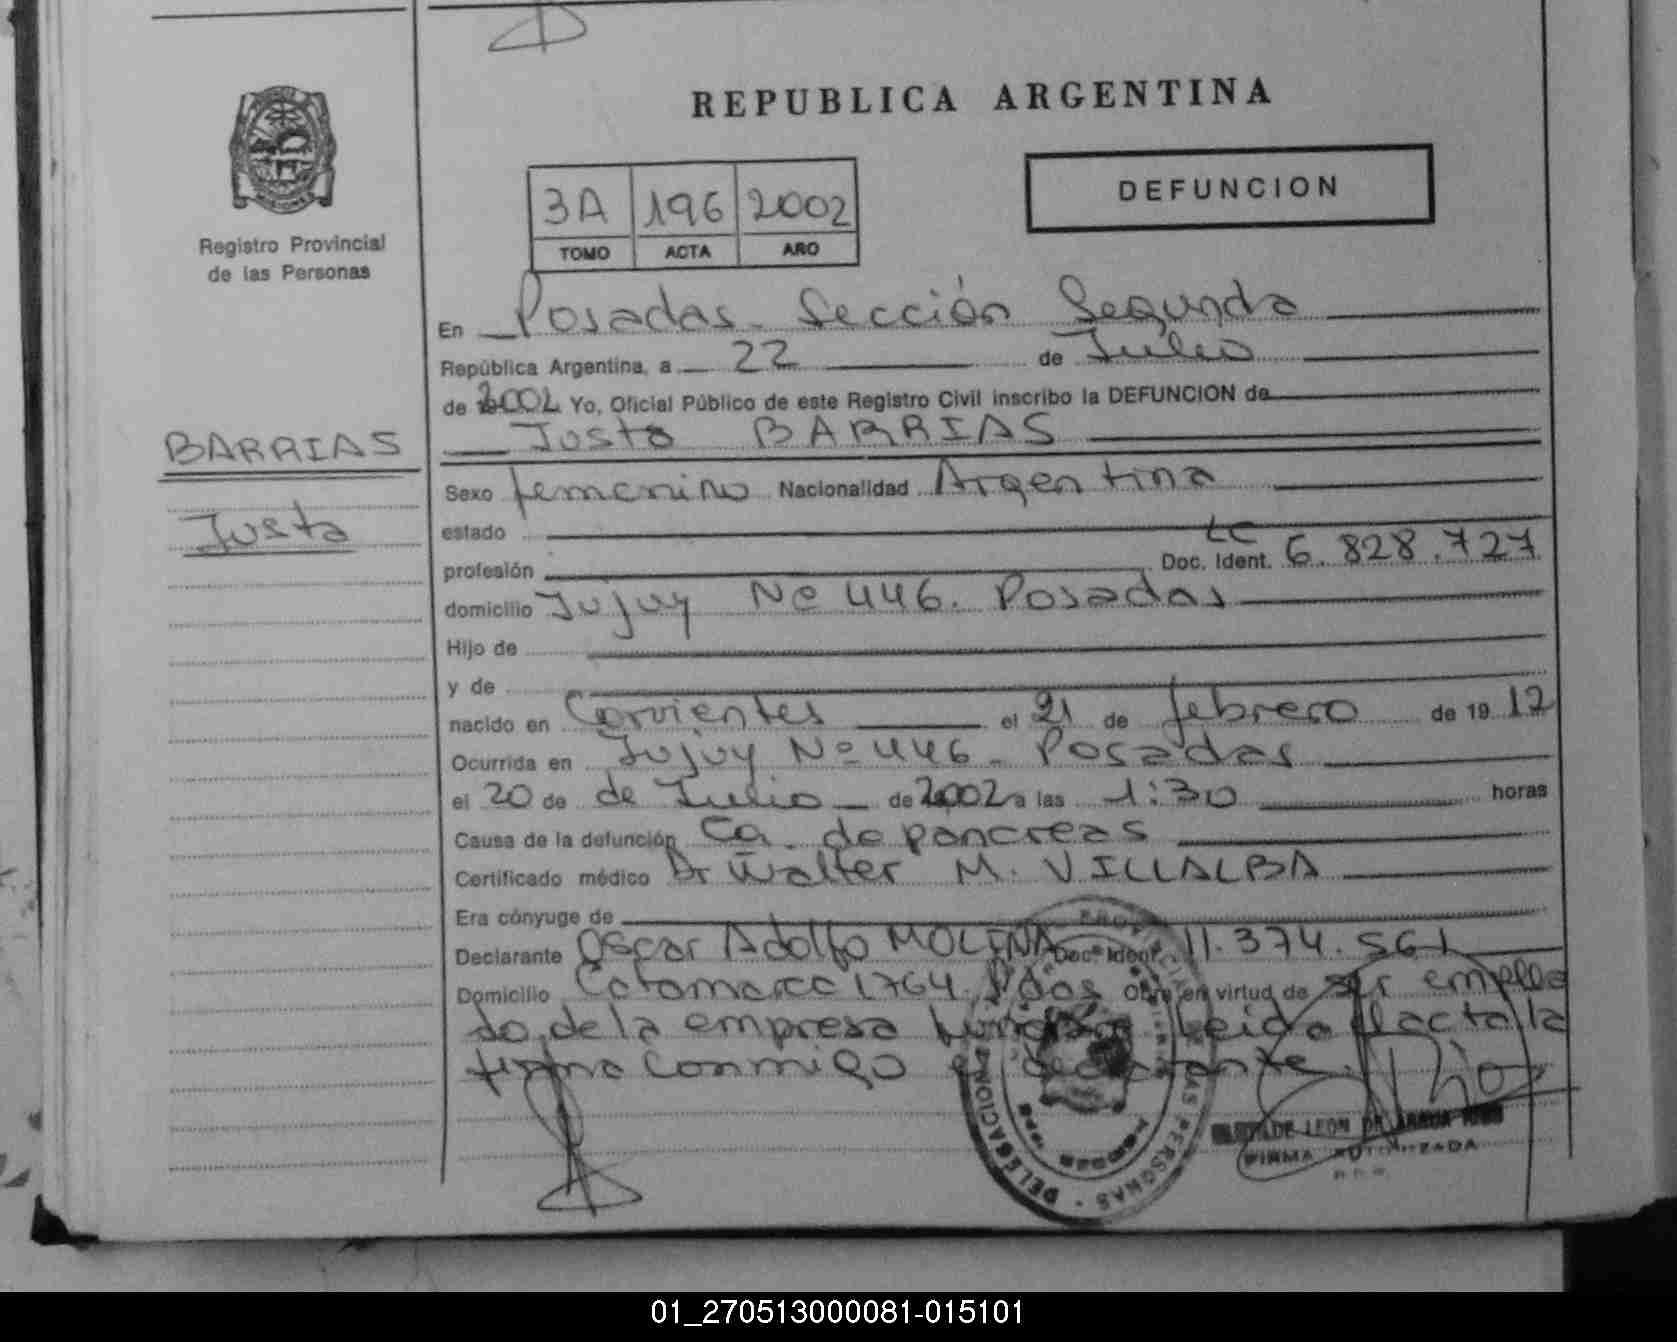 REPUBLICA ARGENTINA
Registro Provincial
de las Personas
3A 196 2002
TOMO ACTA AÑO
DEFUNCION
BARRIAS
Justa
En Posadas. Sección Segunda
República Argentina, a 22 de Julio
de 2002 Yo, Oficial Público de este Registro Civil inscribo la DEFUNCION de
Justa BARRIAS
Sexo femenino Nacionalidad Argentina
estado
profesión Doc. Ident. LC 6.828.727
domicilio Jujuy Nº 446. Posadas
Hijo de
y de
nacido en Corrientes el 21 de febrero de 1912
Ocurrida en Jujuy Nº 446. Posadas
el 20 de de Julio de 2002 a las 1:30 horas
Causa de la defunción Ca. de pancreas
Certificado médico Dr Walter M. VILLALBA
Era cónyuge de
Declarante Oscar Adolfo MOLINA Doc. Ident. 11.374.561
Domicilio Catamarca 1764. Pdas Obra en virtud de ser emplea
do de la empresa Leida el acta la
firma conmigo el declarante.
DELEGACION PERSONAS
LEON DE
FIRMA AUTORIZADA
01_270513000081-015101